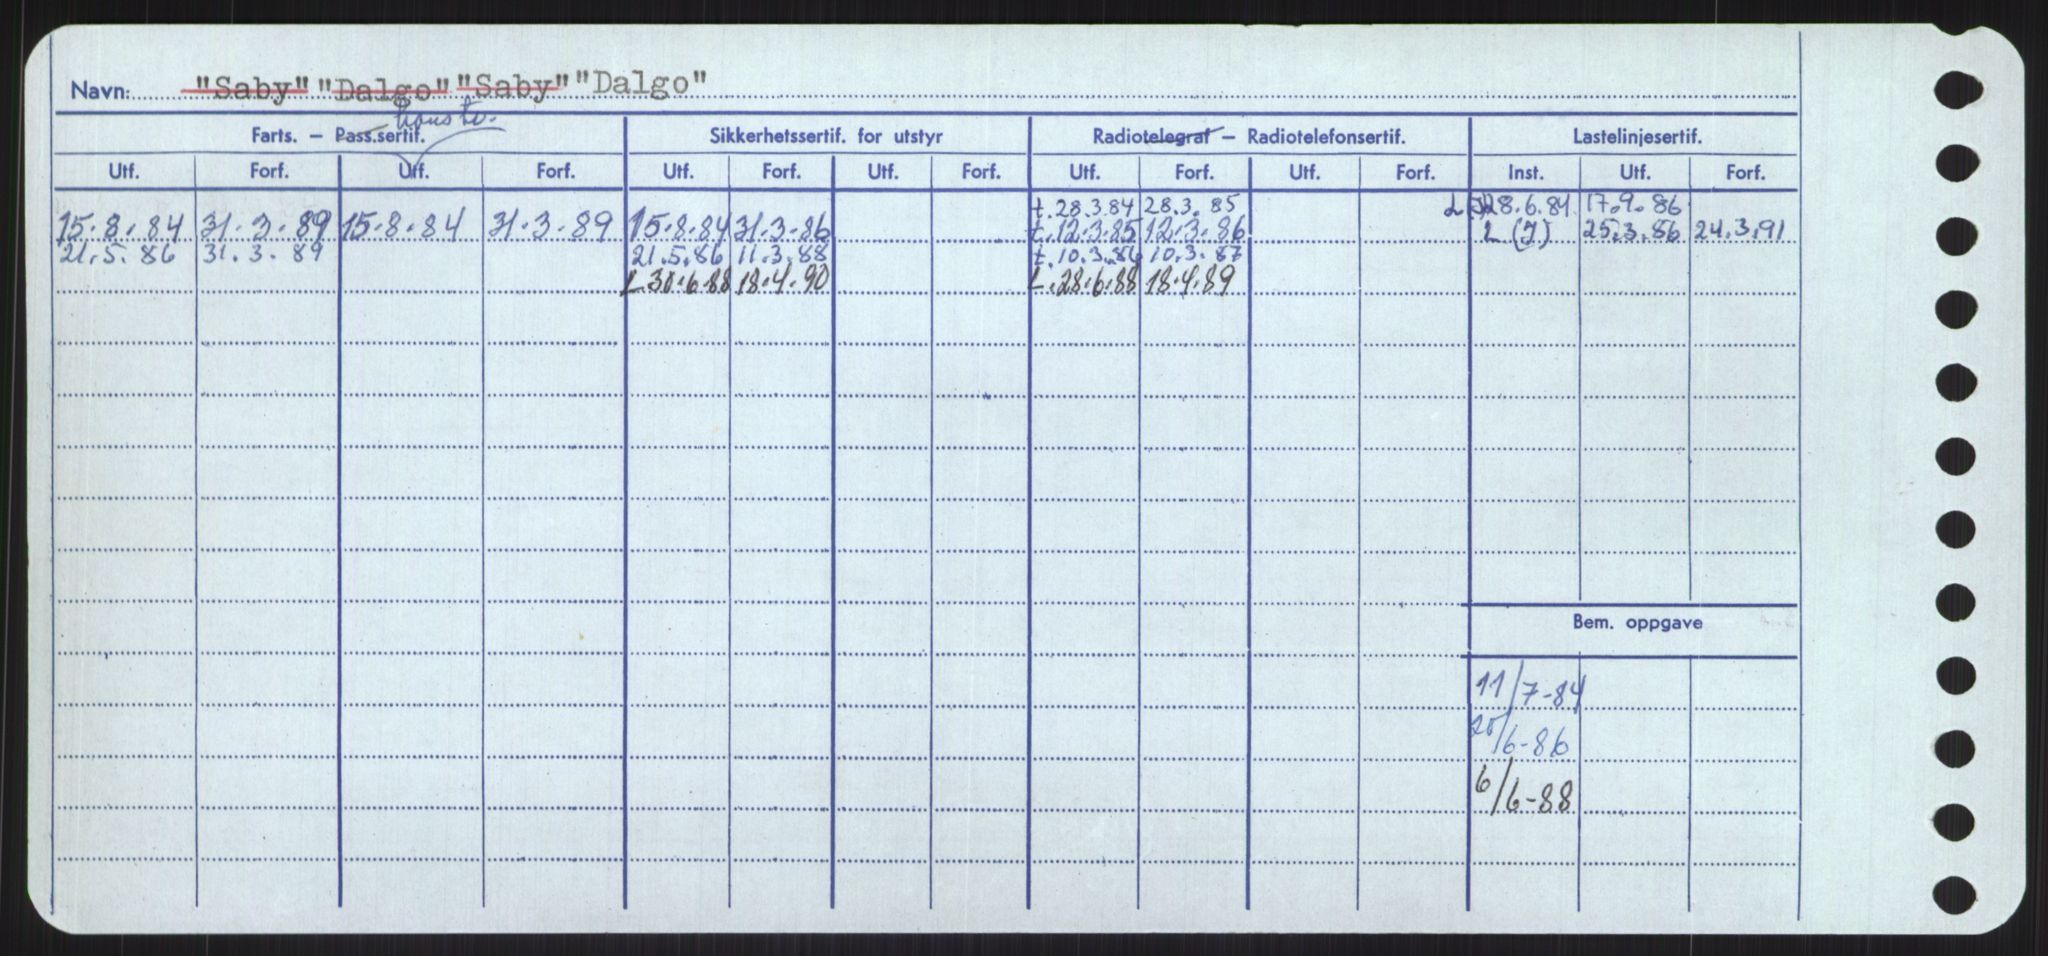 Navn: "Saby" "Dalgo" "Saby" "Dalgo"
konstr.
Farts. – Pass.sertif. Sikkerhetssertif. for utstyr Radiotelegraf – Radiotelefonsertif. Lastelinjesertif.
Utf. Forf. Utf. Forf. Utf. Forf. Utf. Forf. Utf. Forf. Utf. Forf. Inst. Utf. Forf.
t. 28.3.84 28.3.85 28.6.84 17.9.86
15.8.84 31.3.89 15.8.84 31.3.89 15.8.84 31.3.86 t. 12.3.85 12.3.86 L (J) 25.3.86 24.3.91
21.5.86 31.3.89 21.5.86 11.3.88 t. 10.3.86 10.3.87
L 30.6.88 18.4.90 L. 28.6.88 18.4.89
Bem. oppgave
11/7-84
20/6-86
6/6-88